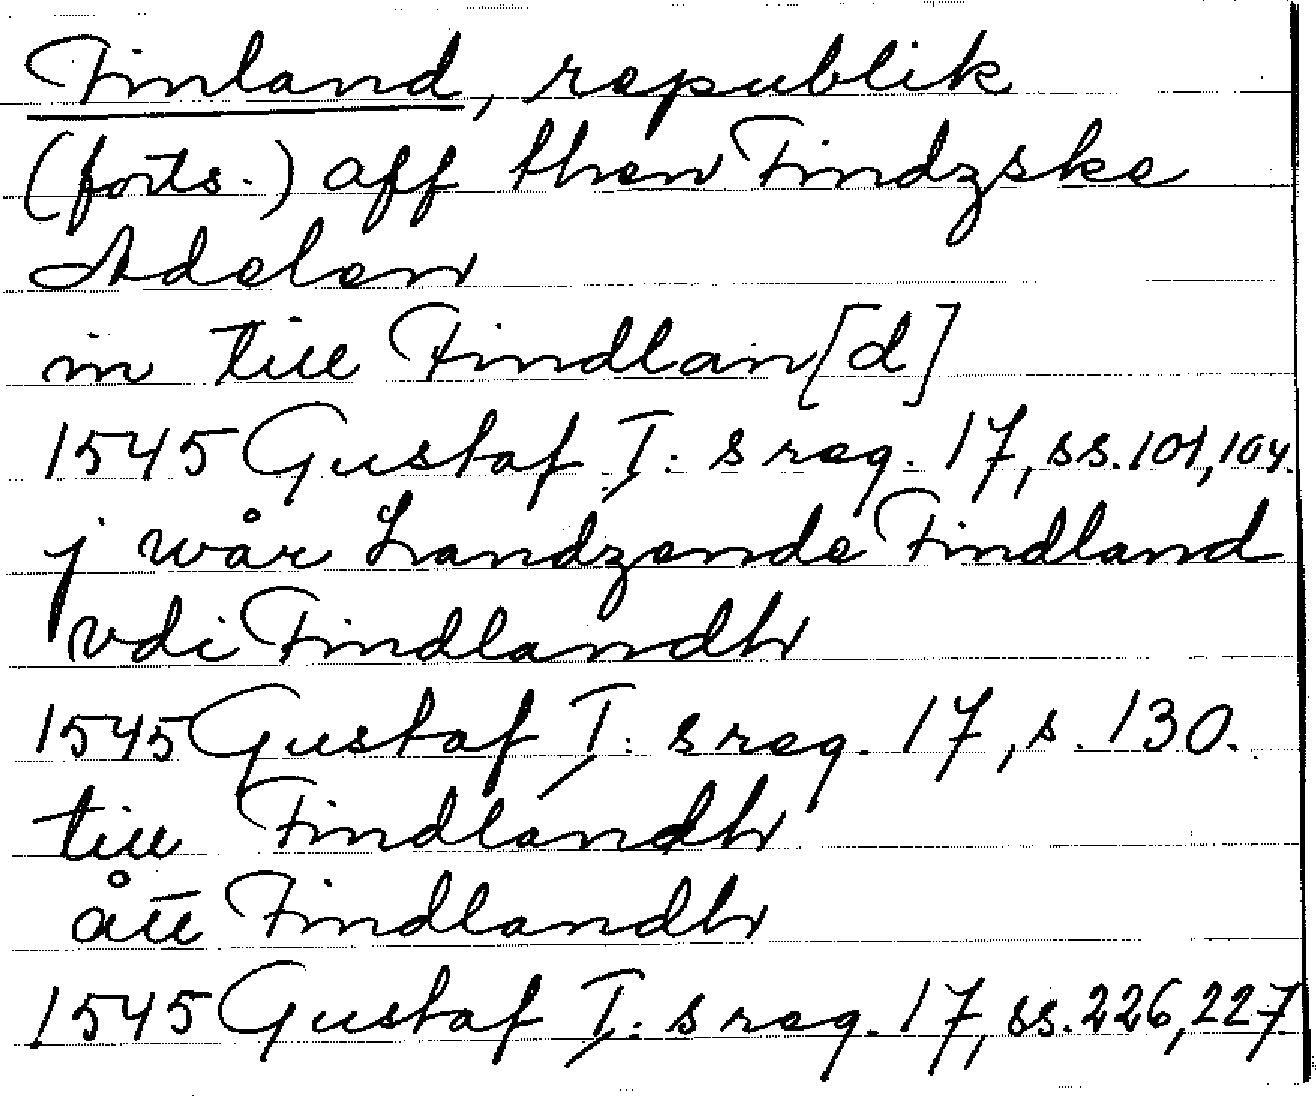 Finland, republik
(forts.) aff then Findzske
Adelen
in till Findlan[d]
1545 Gustaf I: s reg. 17, ss. 101, 104.
j wår Landzende Findland
vdi Findlandh
1545 Gustaf I: s reg. 17, s. 130.
till Findlandh
ått Findlandh
1545 Gustaf I: s reg. 17, ss. 226, 227